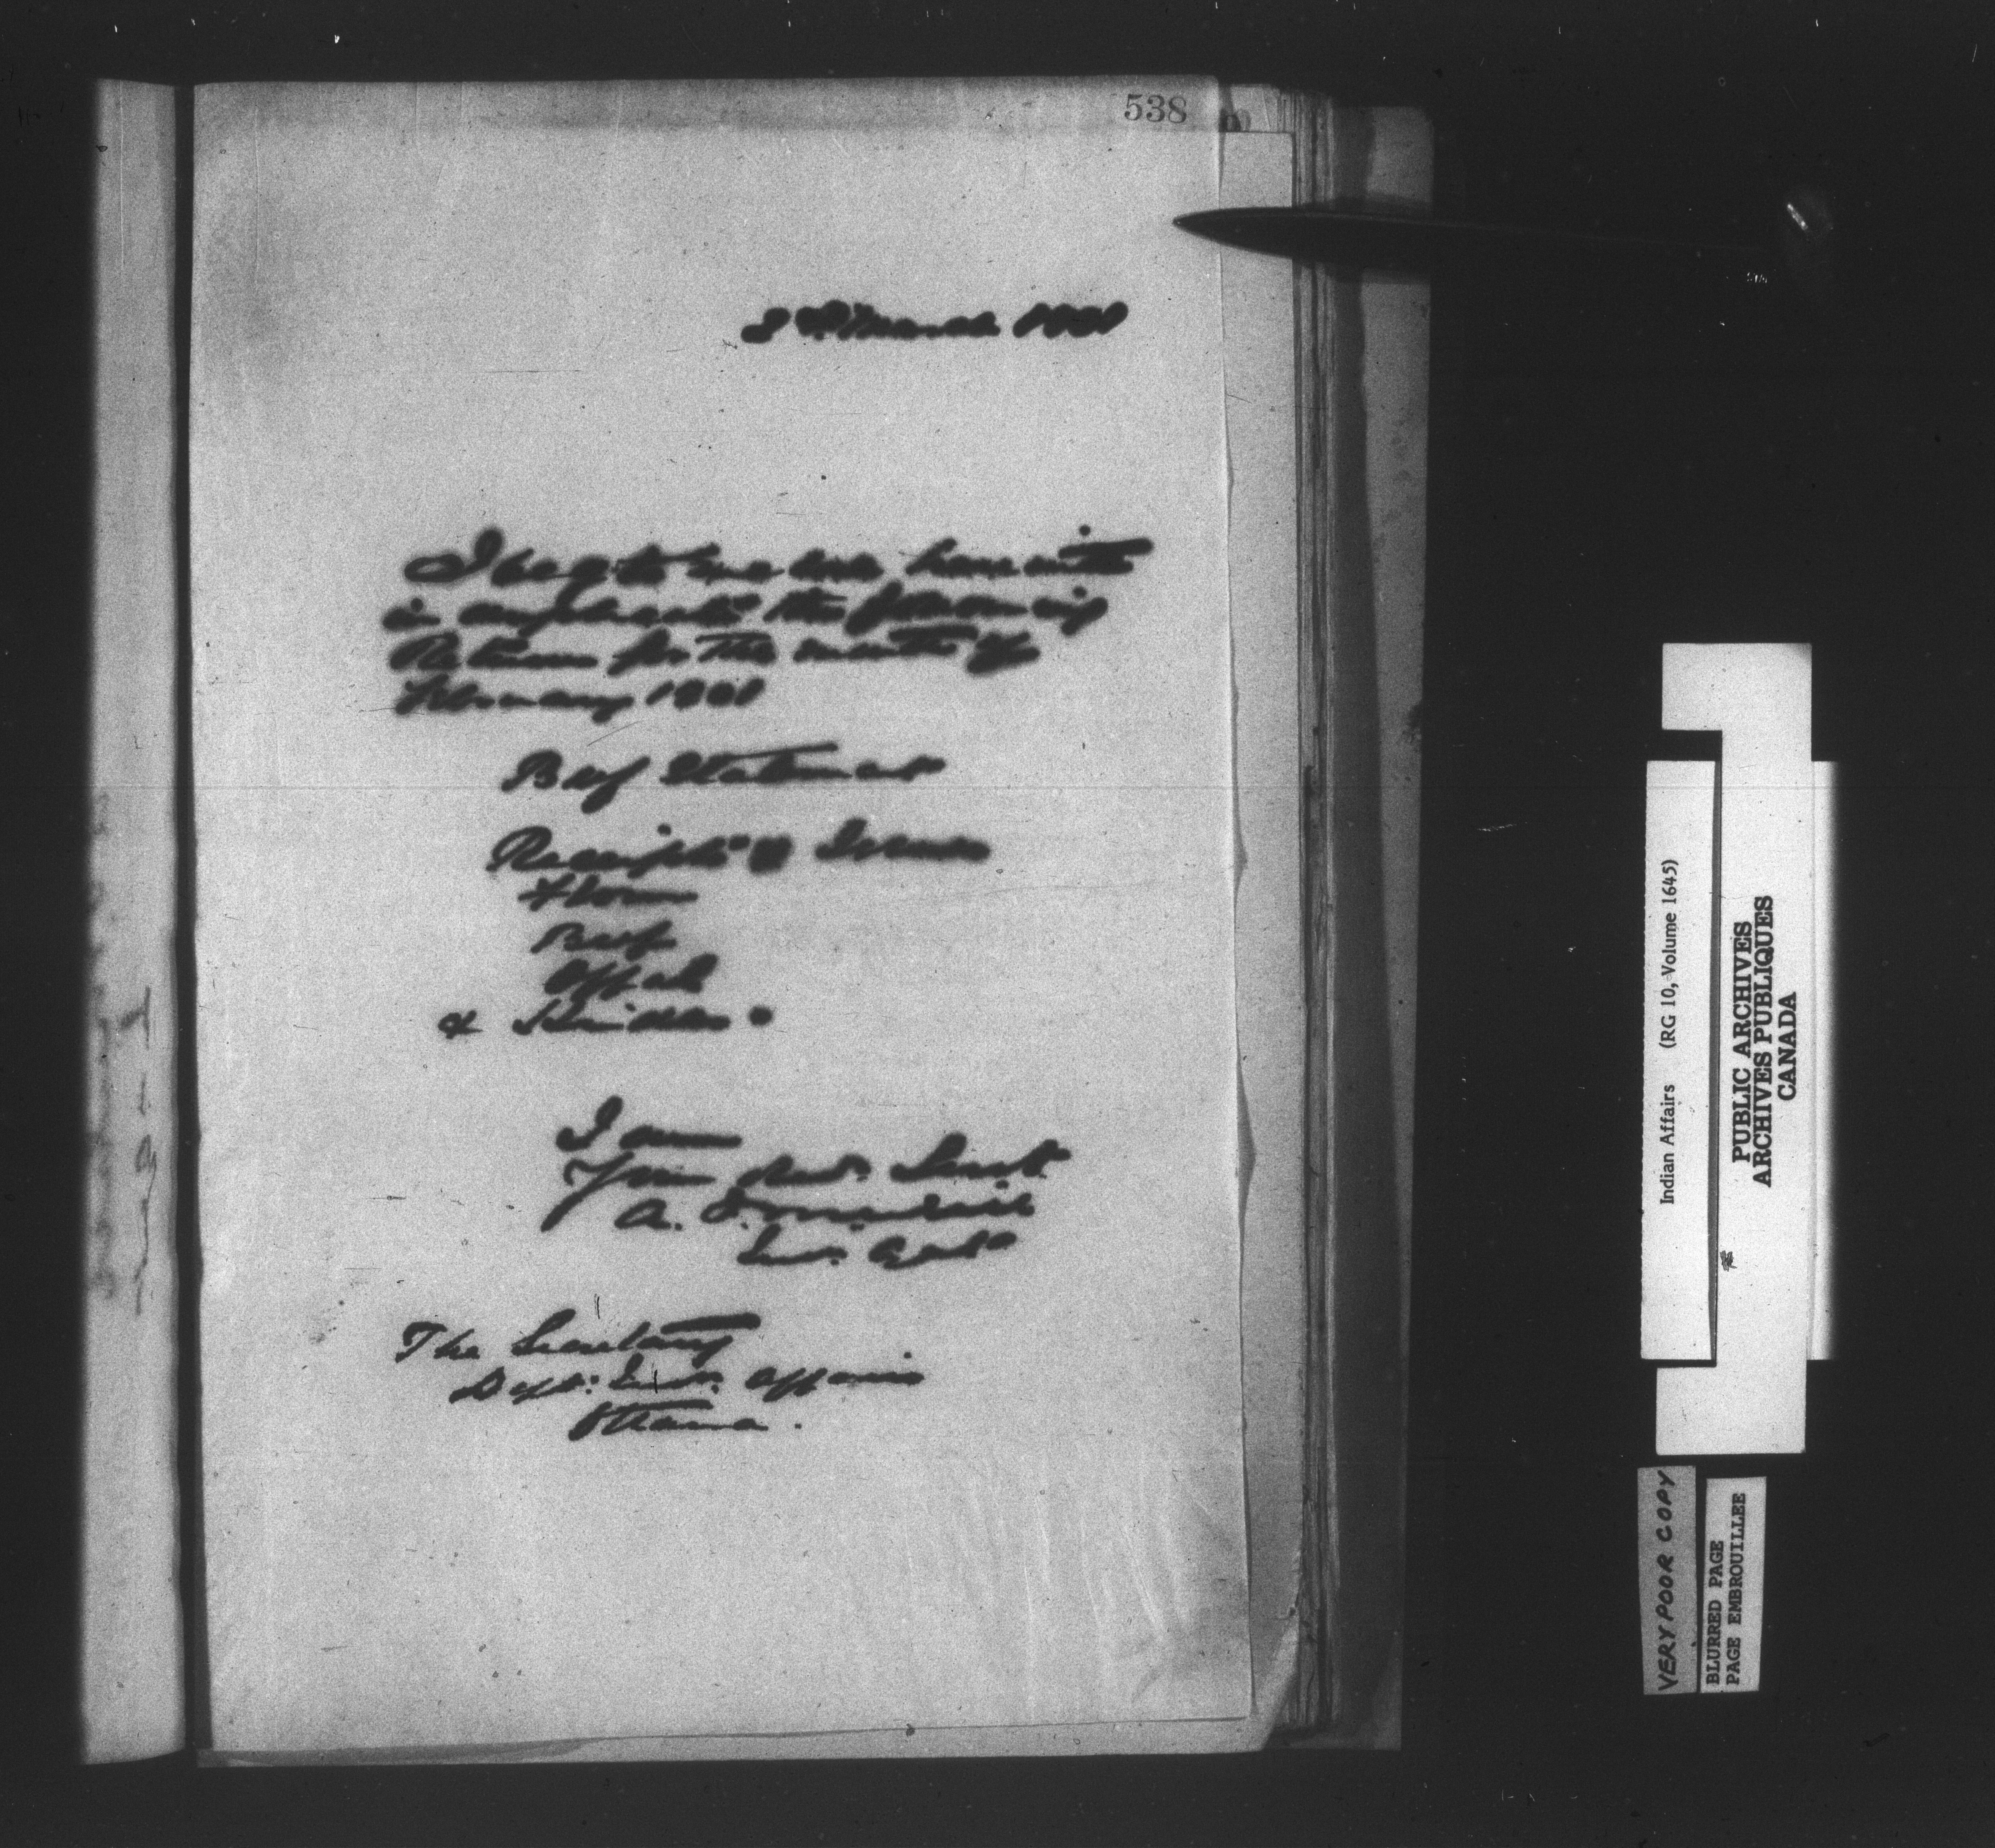 538
8th March 1901
I beg to enclose herewith
in duplicate the following
Returns for the month of
February 1901
Beef Statement
Receipts & Issues
Flour
Beef
Offal
& Hides
I am
Your obdt. Servt.
A.
Ind. Agent
The Secretary
Dept. Ind. Affairs
Ottawa.
Indian Affairs (RG 10, Volume 1645)
PUBLIC ARCHIVES
ARCHIVES PUBLIQUES
CANADA
VERY POOR COPY
BLURRED PAGE
PAGE EMBROUILLEE